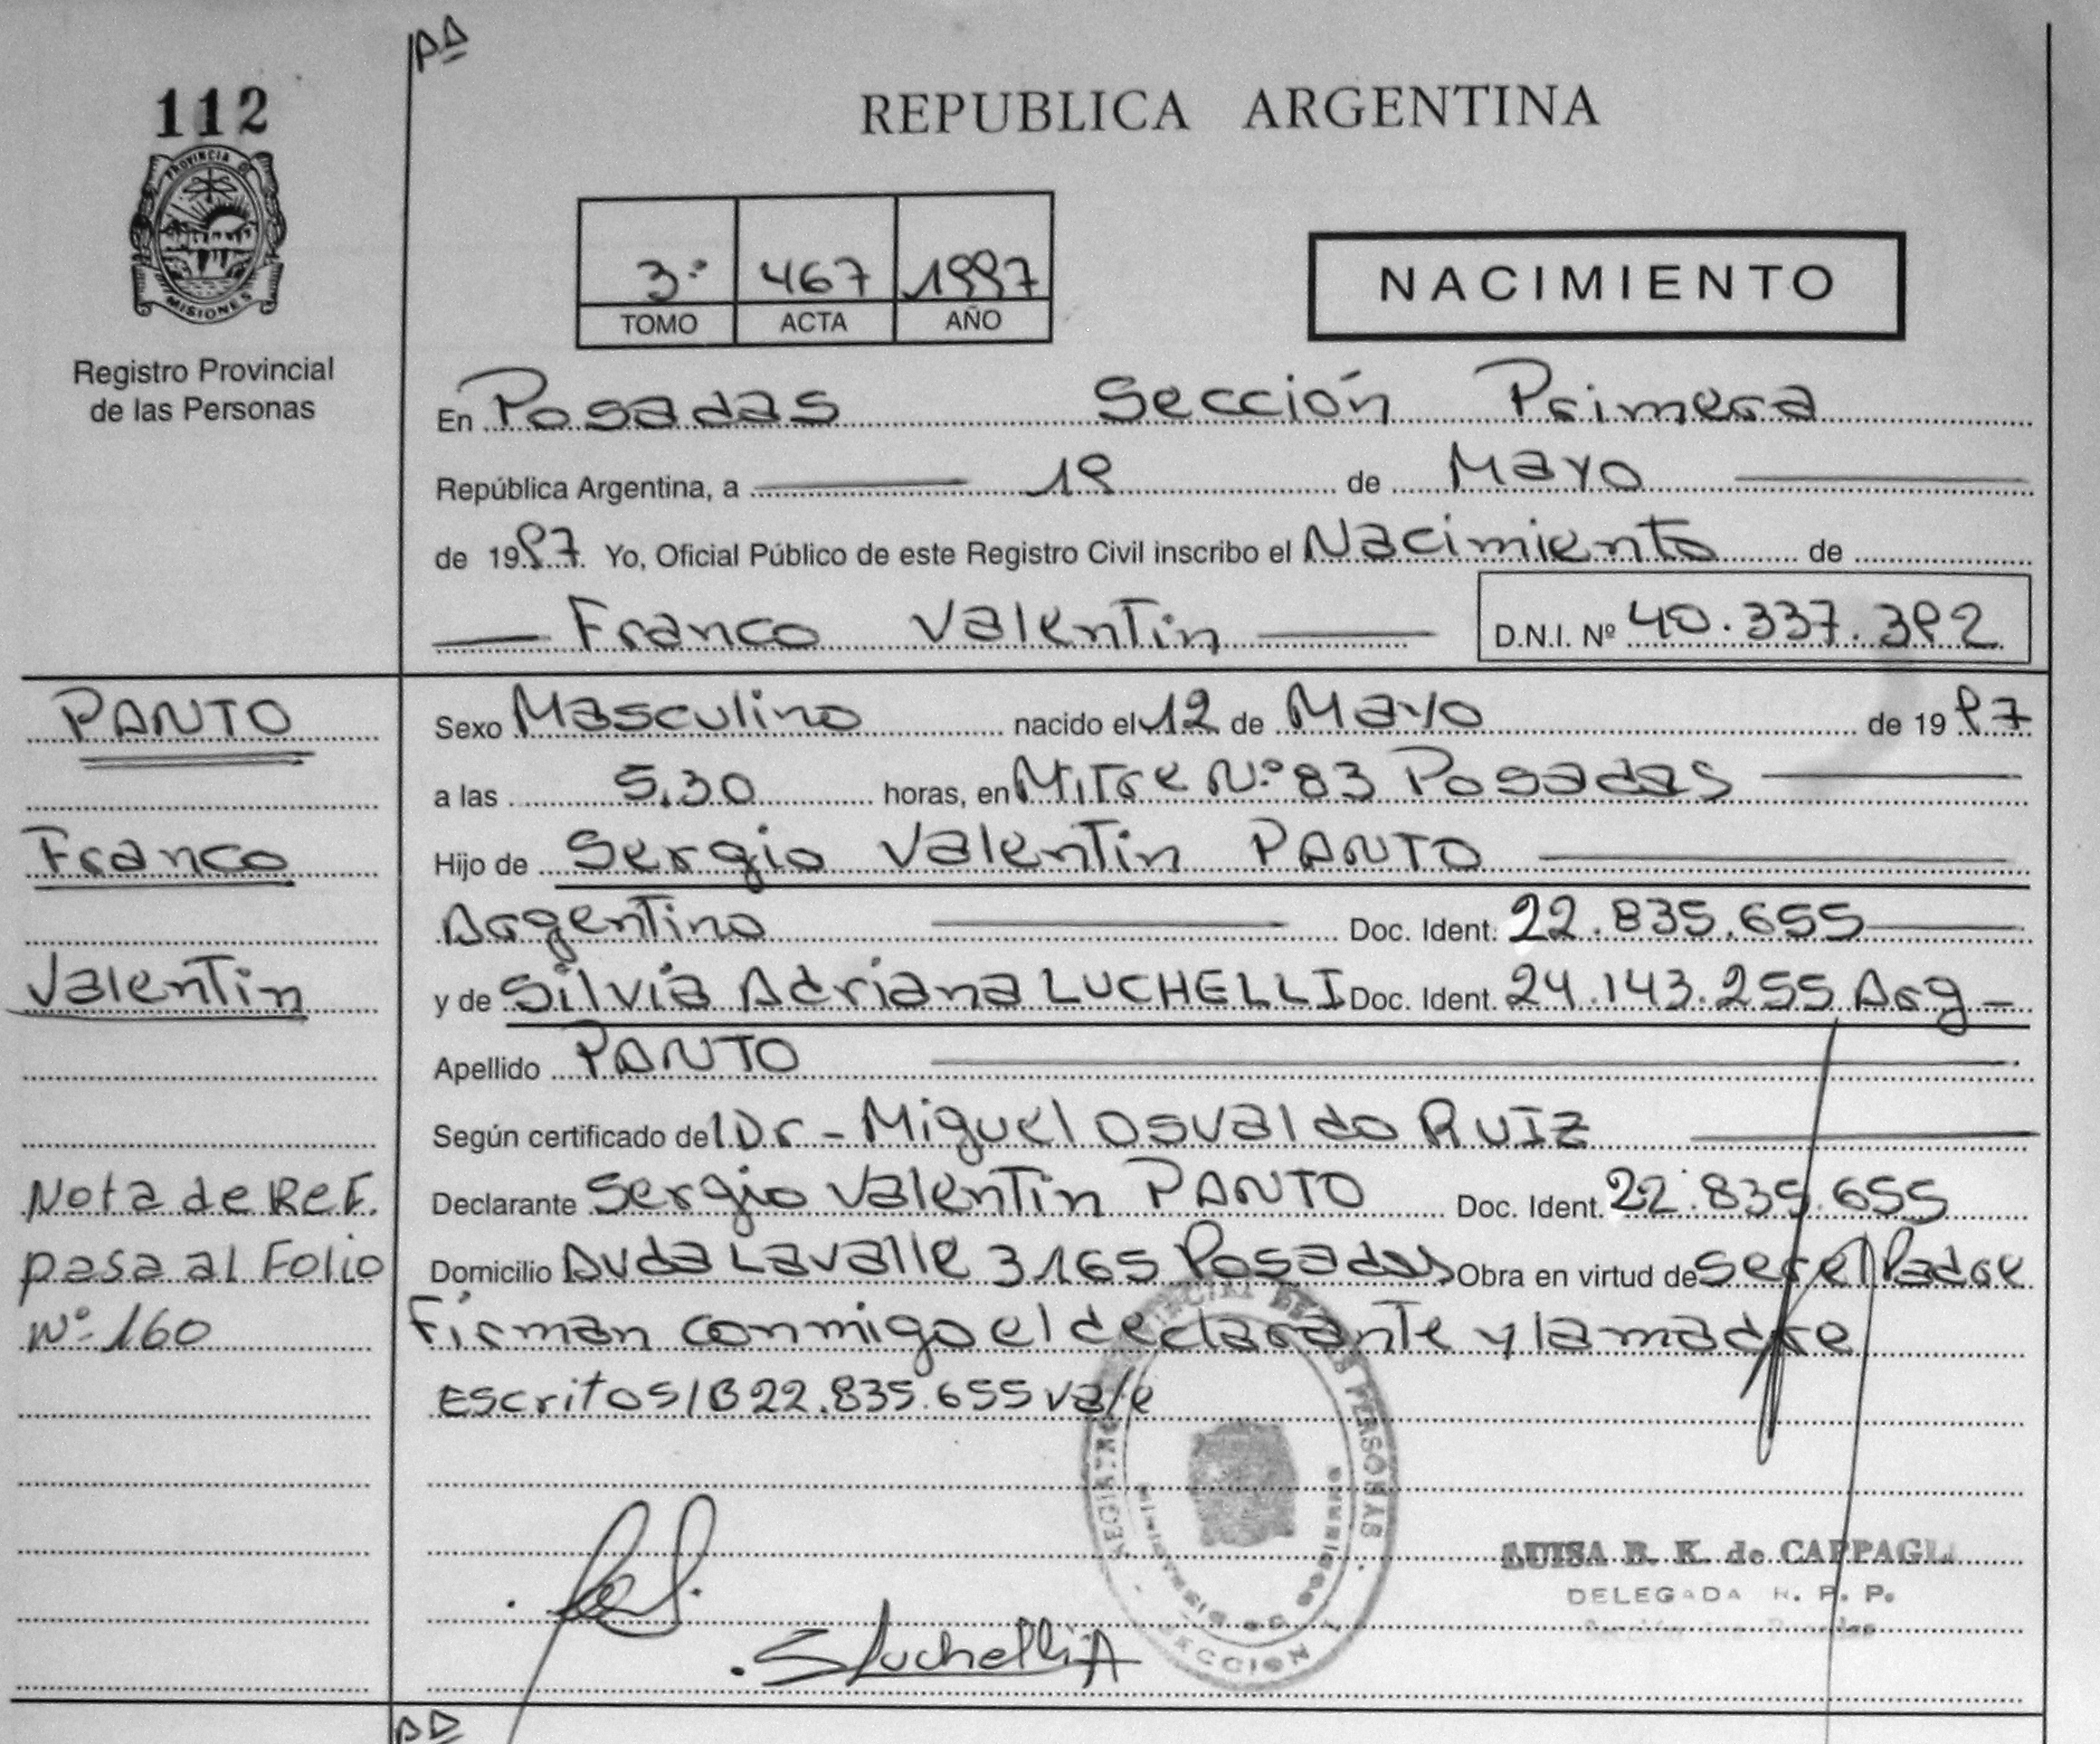 112
REPUBLICA ARGENTINA
PROVINCIA DE
MISIONES
3º 467 1997
TOMO ACTA AÑO
NACIMIENTO
Registro Provincial
de las Personas
En Posadas Sección Primera
República Argentina, a 19 de Mayo
de 1997 Yo, Oficial Público de este Registro Civil inscribo el Nacimiento de
Franco Valentin D.N.I. Nº 40.337.392
PANTO
Sexo Masculino nacido el 12 de Mayo de 1997
a las 5.30 horas, en Mitre Nº 83 Posadas
Franco
Hijo de Sergio Valentin PANTO
Argentino Doc. Ident. 22.835.655
Valentin
y de Silvia Adriana LUCHELLI Doc. Ident. 24.143.255 Arg-
Apellido PANTO
Según certificado del Dr- Miguel Osvaldo RUIZ
Nota de Ref.
Declarante Sergio Valentin PANTO Doc. Ident. 22.835.655
pasa al Folio
Domicilio Avda Lavalle 3165 Posadas Obra en virtud de ser el Padre
Nº 160
Firman conmigo el declarante y la madre
Escrito S/B 22.835.655 vale
PERSONAS
LUISA B. K. de CAPPAGLI
DELEGADA R. P. P.
SLuchelli A
SECCION 1